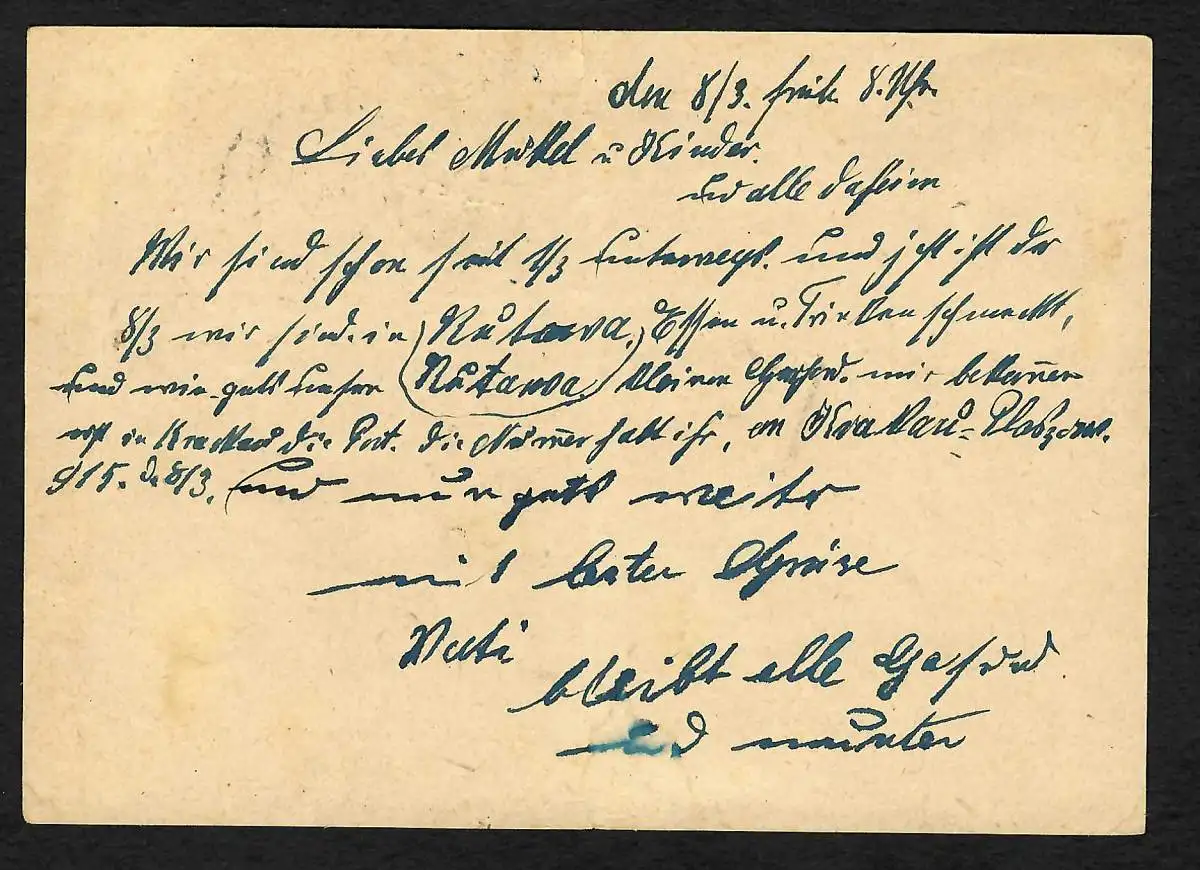 den 8/3. früh 8. Uhr.
Liebes Muttel u Kinder.
und alle daheim
Wir sind schon seit 1/3 unterwegs. und jetzt ist der
8/3 wir sind in (Rutawa.) Essen u. Trinken schmeckt,
und wie gehts unsern (Rutawa.) kleinen Gesund. wir bekommen
erst in Krackau die Post. die Nummer habt ihr, Krakau-
915. d. 8/3. und nun gehts weiter
mit besten Grüße
Vati
bleibt alle Gesund
und munter